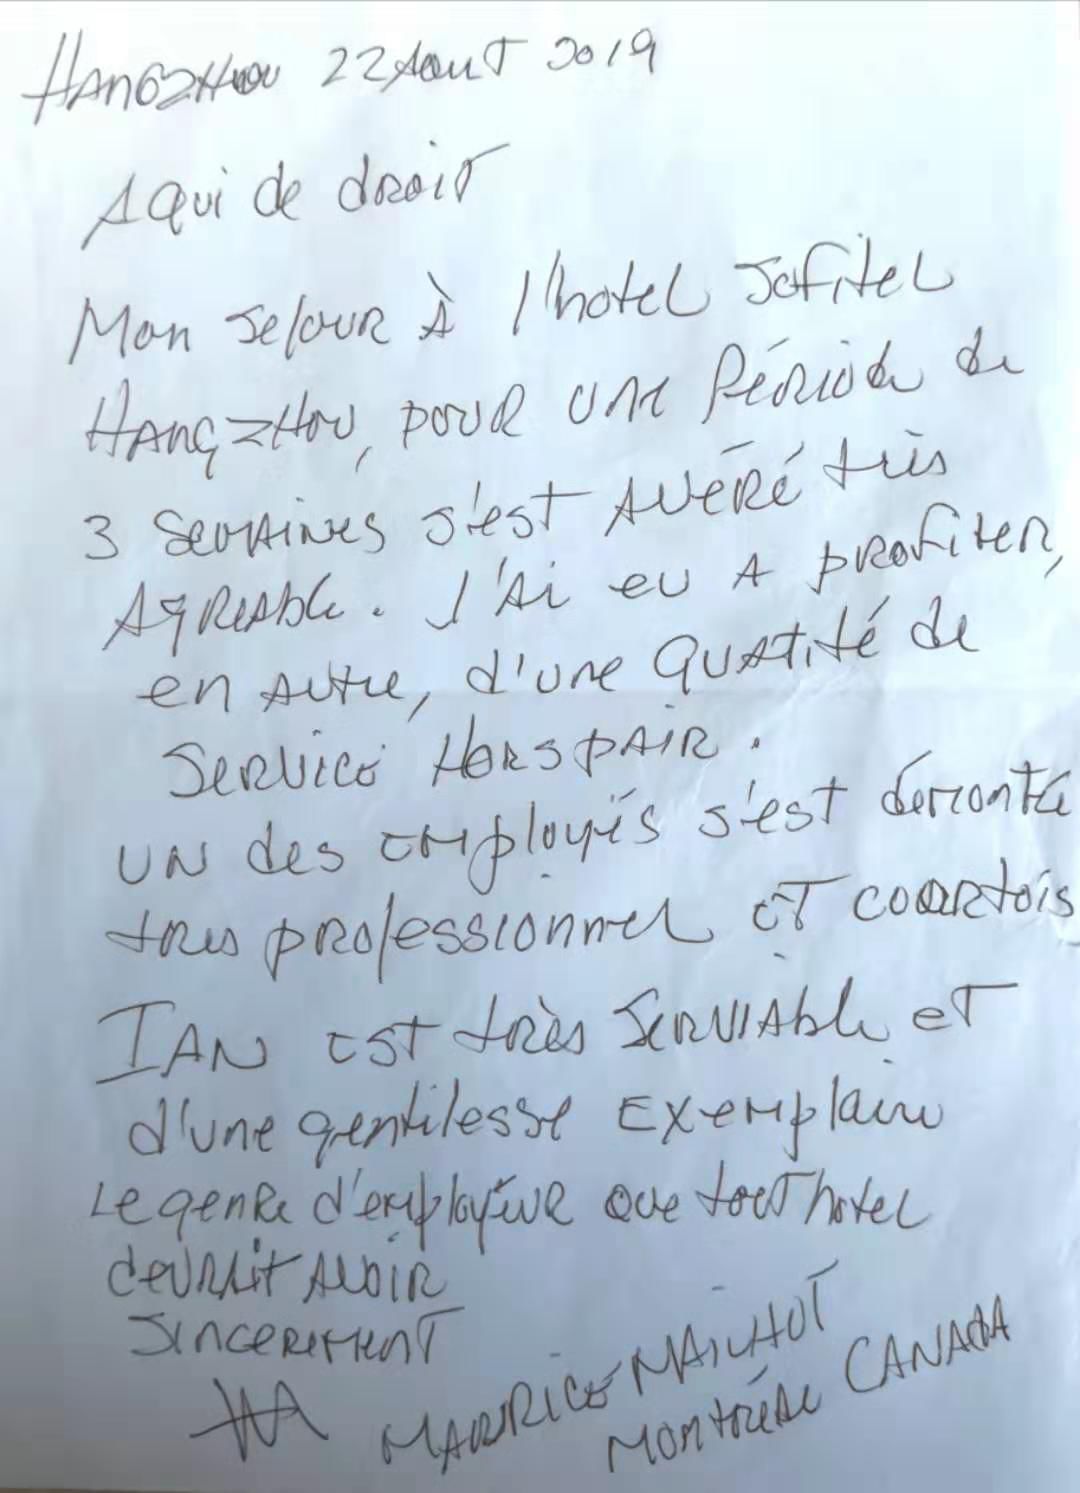 HANGZHOU 22 AOUT 2019
A Qui de droit
Mon sejour à l'hotel Sofitel
HANGZHOU, pour une Période de
3 semaines s'est AVÉRÉ très
Agréable. J'Ai eu A profiter,
en autre, d'une quatité de
Service HORS PAIR.
UN des employés s'est démontré
tres professionnel et courtois
IAN est très Serviable et
d'une gentilesse Exemplaire
Le genre d'employeur que tout hotel
devrait AVOIR
SINCEREMENT
MAURICE MAILHOT
MONTRÉAL CANADA